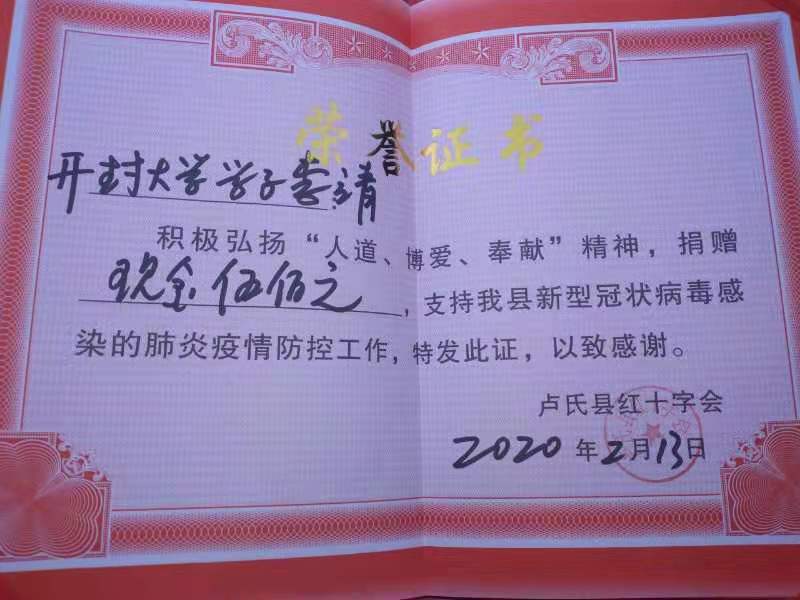 荣誉证书
开封大学学子李靖
积极弘扬“人道、博爱、奉献”精神，捐赠
现金伍佰元，支持我县新型冠状病毒感
染的肺炎疫情防控工作，特发此证，以致感谢。
卢氏县红十字会
2020年2月13日